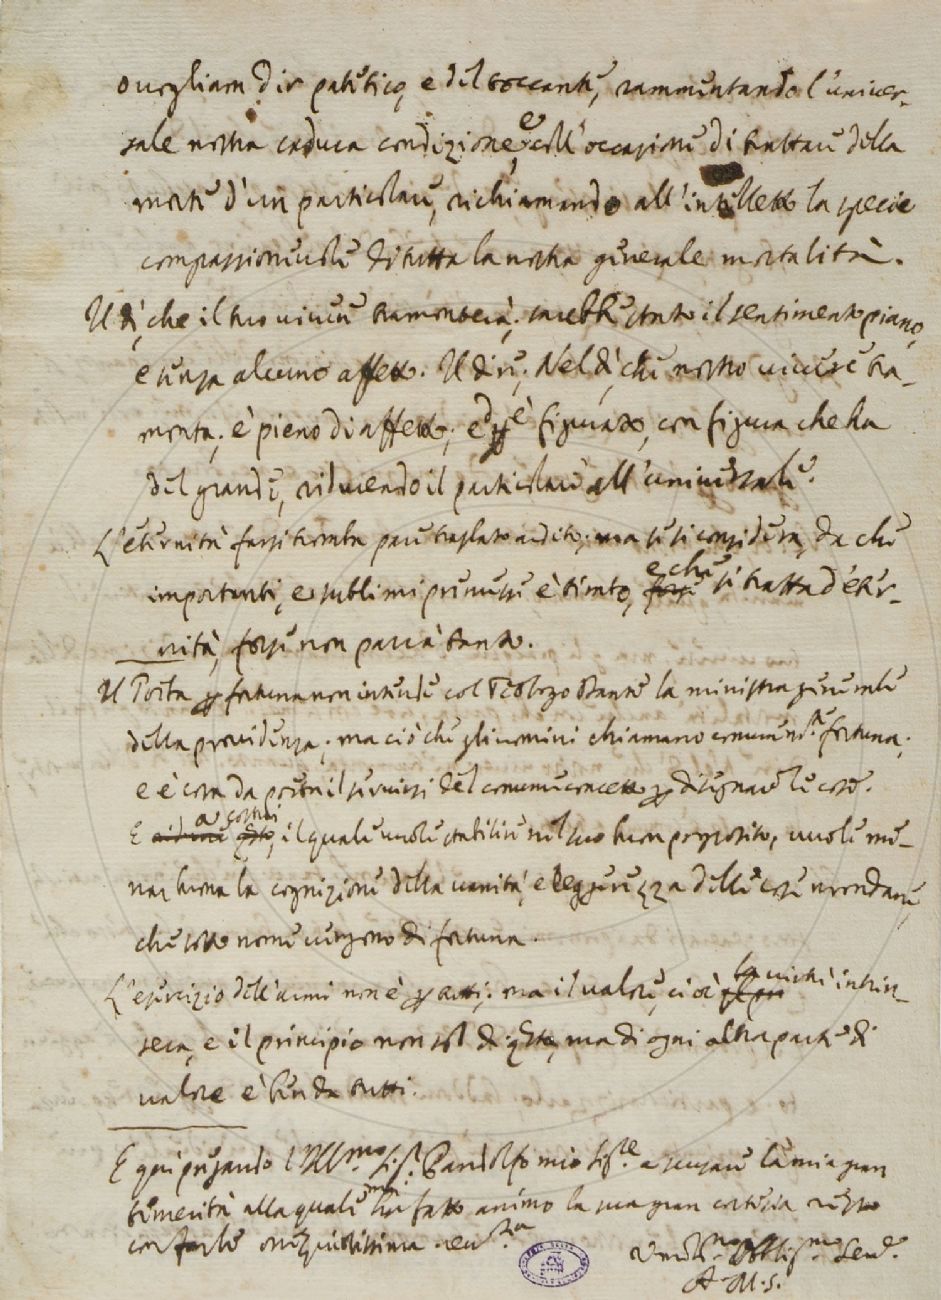 o vogliam dir patetico, e del toccante, rammentando l'univer-
sale nostra caduca condizione, e coll'occasione di trattare della
morte d'un particolare, richiamando all'intelletto la specie
compassionevole di tutta la nostra generale mortalità.
Il dì, che il tuo vivere tramonterà; sarebbe stato il sentimento piano,
e senza alcuno affetto. Il dire; Nel dì, che nostro vivere tra-
monta; è pieno di affetto; e di più è figurato, con figura che ha
del grande, riducendo il particolare all'universale.
L'eternità farsi tromba pare traslato ardito; ma se si considera, da che
importanti, e sublimi premesse è tirato, e che si tratta d'eter-
nità, forse non parrà tanto.
Il Poeta p fortuna non intende col Teologo Dante la ministra generale
della providenza; ma ciò che gli uomini chiamano comunem.te fortuna;
e è cosa da poeta il servirsi del comune concetto p disegnare le cose.
E a costui, il quale vuole stabilire nel suo buon proposito, vuole me-
nar buona la cognizione della vanità, e leggerezza delle cose mondane,
che sotto nome vengono di fortuna.
L'esercizio dell'armi non è p tutti; ma il valore, cioè la virtù intrin-
seca, e il principio non sol di q.sto, ma di ogni altra parte di
valore è ben da tutti.
E qui pregando l'Ill.mo Sig.r Pandolfo mio Sig.re a scusare la mia gran
temerità alla quale mi ha fatto animo la sua gran cortesia resto
con farle ossequiosissima rev.za
Um.o Obblig.mo Serv.e
A. M. S.